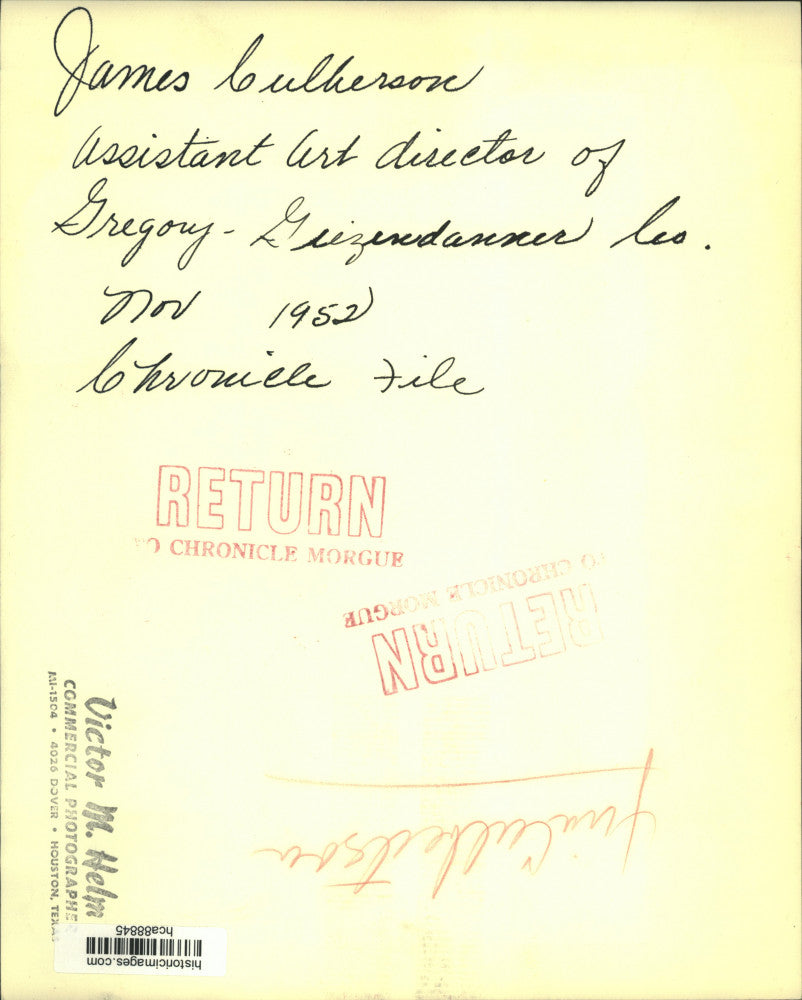 James Culberson
Assistant Art director of
Gregory-Giezendanner Co.
Nov 1952
Chronicle File
RETURN
TO CHRONICLE MORGUE
RETURN
TO CHRONICLE MORGUE
Victor M. Helm
COMMERCIAL PHOTOGRAPHER
MI-1504 • 4026 DOVER • HOUSTON, TEXAS
Jim
historicimages.com
hca88845